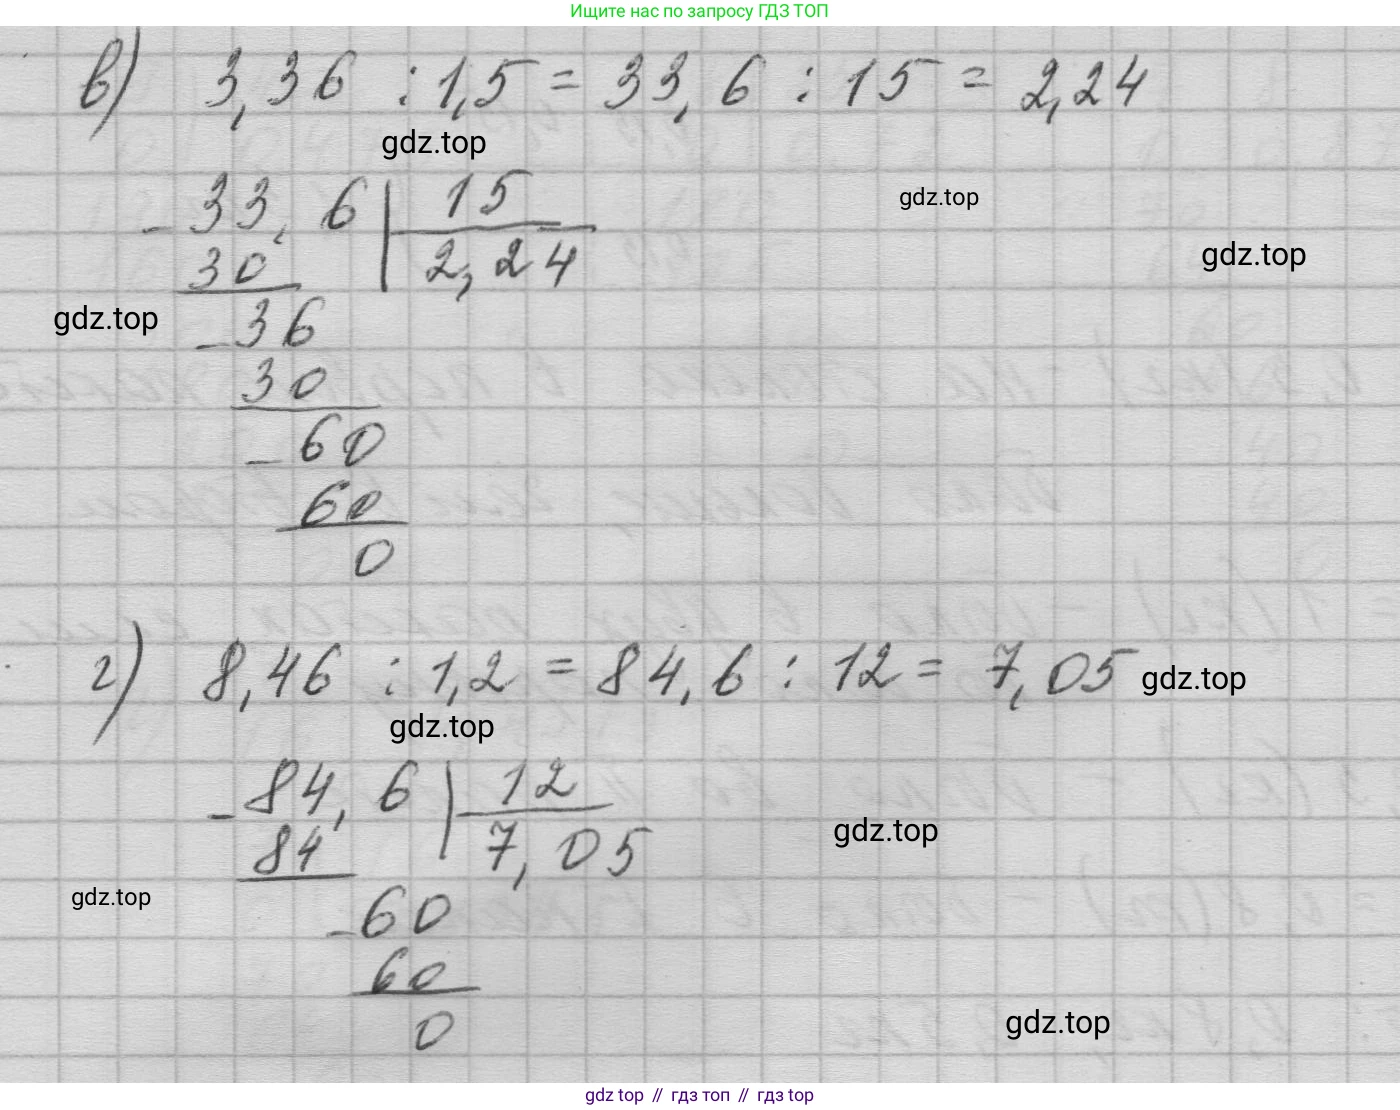 Ищите нас по запросу ГДЗ ТОП
в) 3,36 : 1,5 = 33,6 : 15 = 2,24
gdz.top
gdz.top
- 33,6 | 15
30 2,24
gdz.top
gdz.top
- 36
30
- 60
60
0
г) 8,46 : 1,2 = 84,6 : 12 = 7,05
gdz.top
gdz.top
- 84,6 | 12
84 7,05
gdz.top
gdz.top
- 60
60
0
gdz.top
gdz top // гдз топ // гдз top